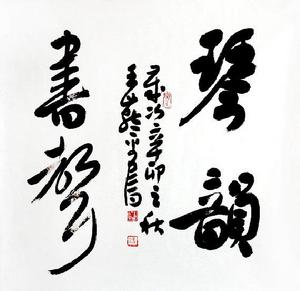 琴韻
書聲
歲次辛卯之秋